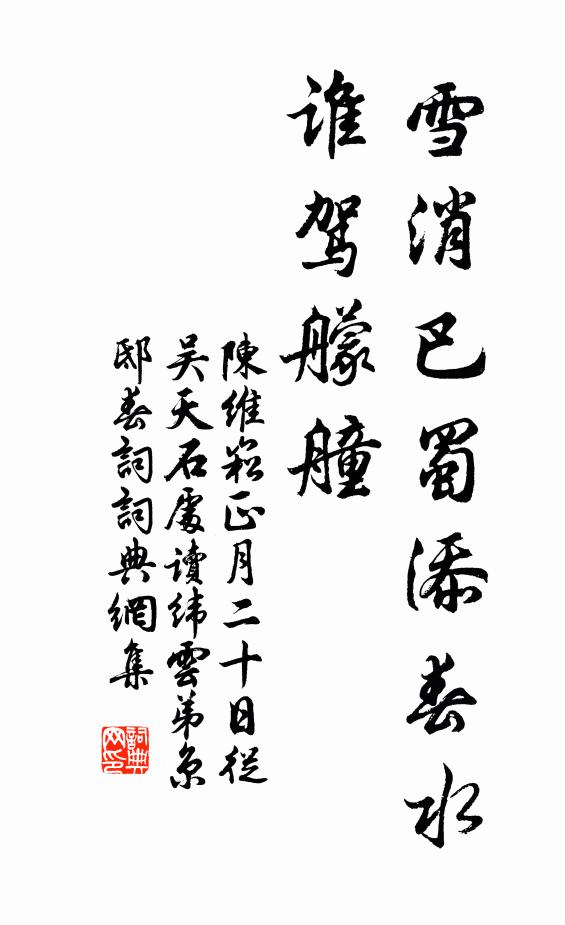 雪消巴蜀添春水
谁駕艨艟
陳維崧正月二十日從
吴天石處讀緯雲弟京
邸春詞詞典網集
詞典网印